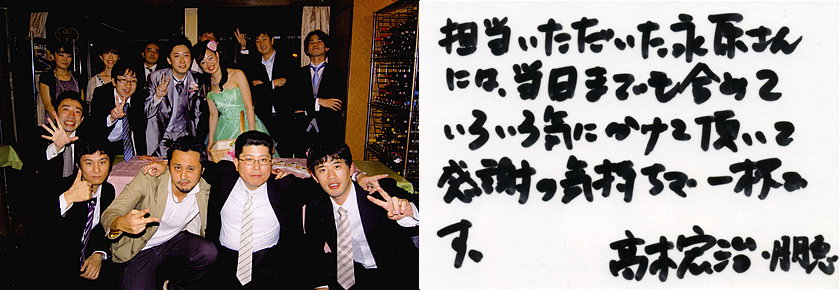 担当いただいた永原さん
には、当日までも含めて
いろいろ気にかけて頂いて
感謝の気持ちで一杯で
す。
高木宏治・朋恵